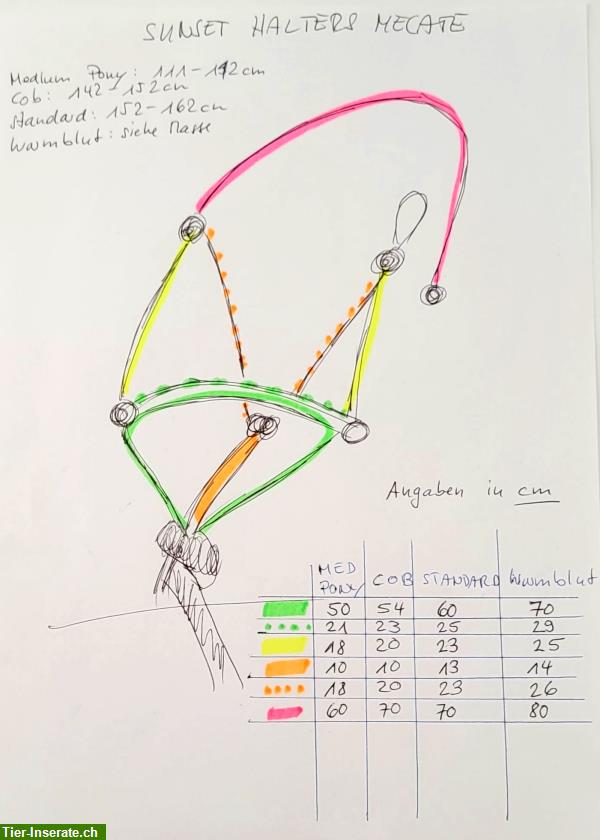 SUNSET HALTERS MECATE
Medium Pony: 111-142cm
Cob: 142-152cm
Standard: 152-162cm
Warmblut: siehe Masse
Angaben in cm
MED PONY COB STANDARD Warmblut
50 54 60 70
21 23 25 29
18 20 23 25
10 10 13 14
18 20 23 26
60 70 70 80
Tier-Inserate.ch